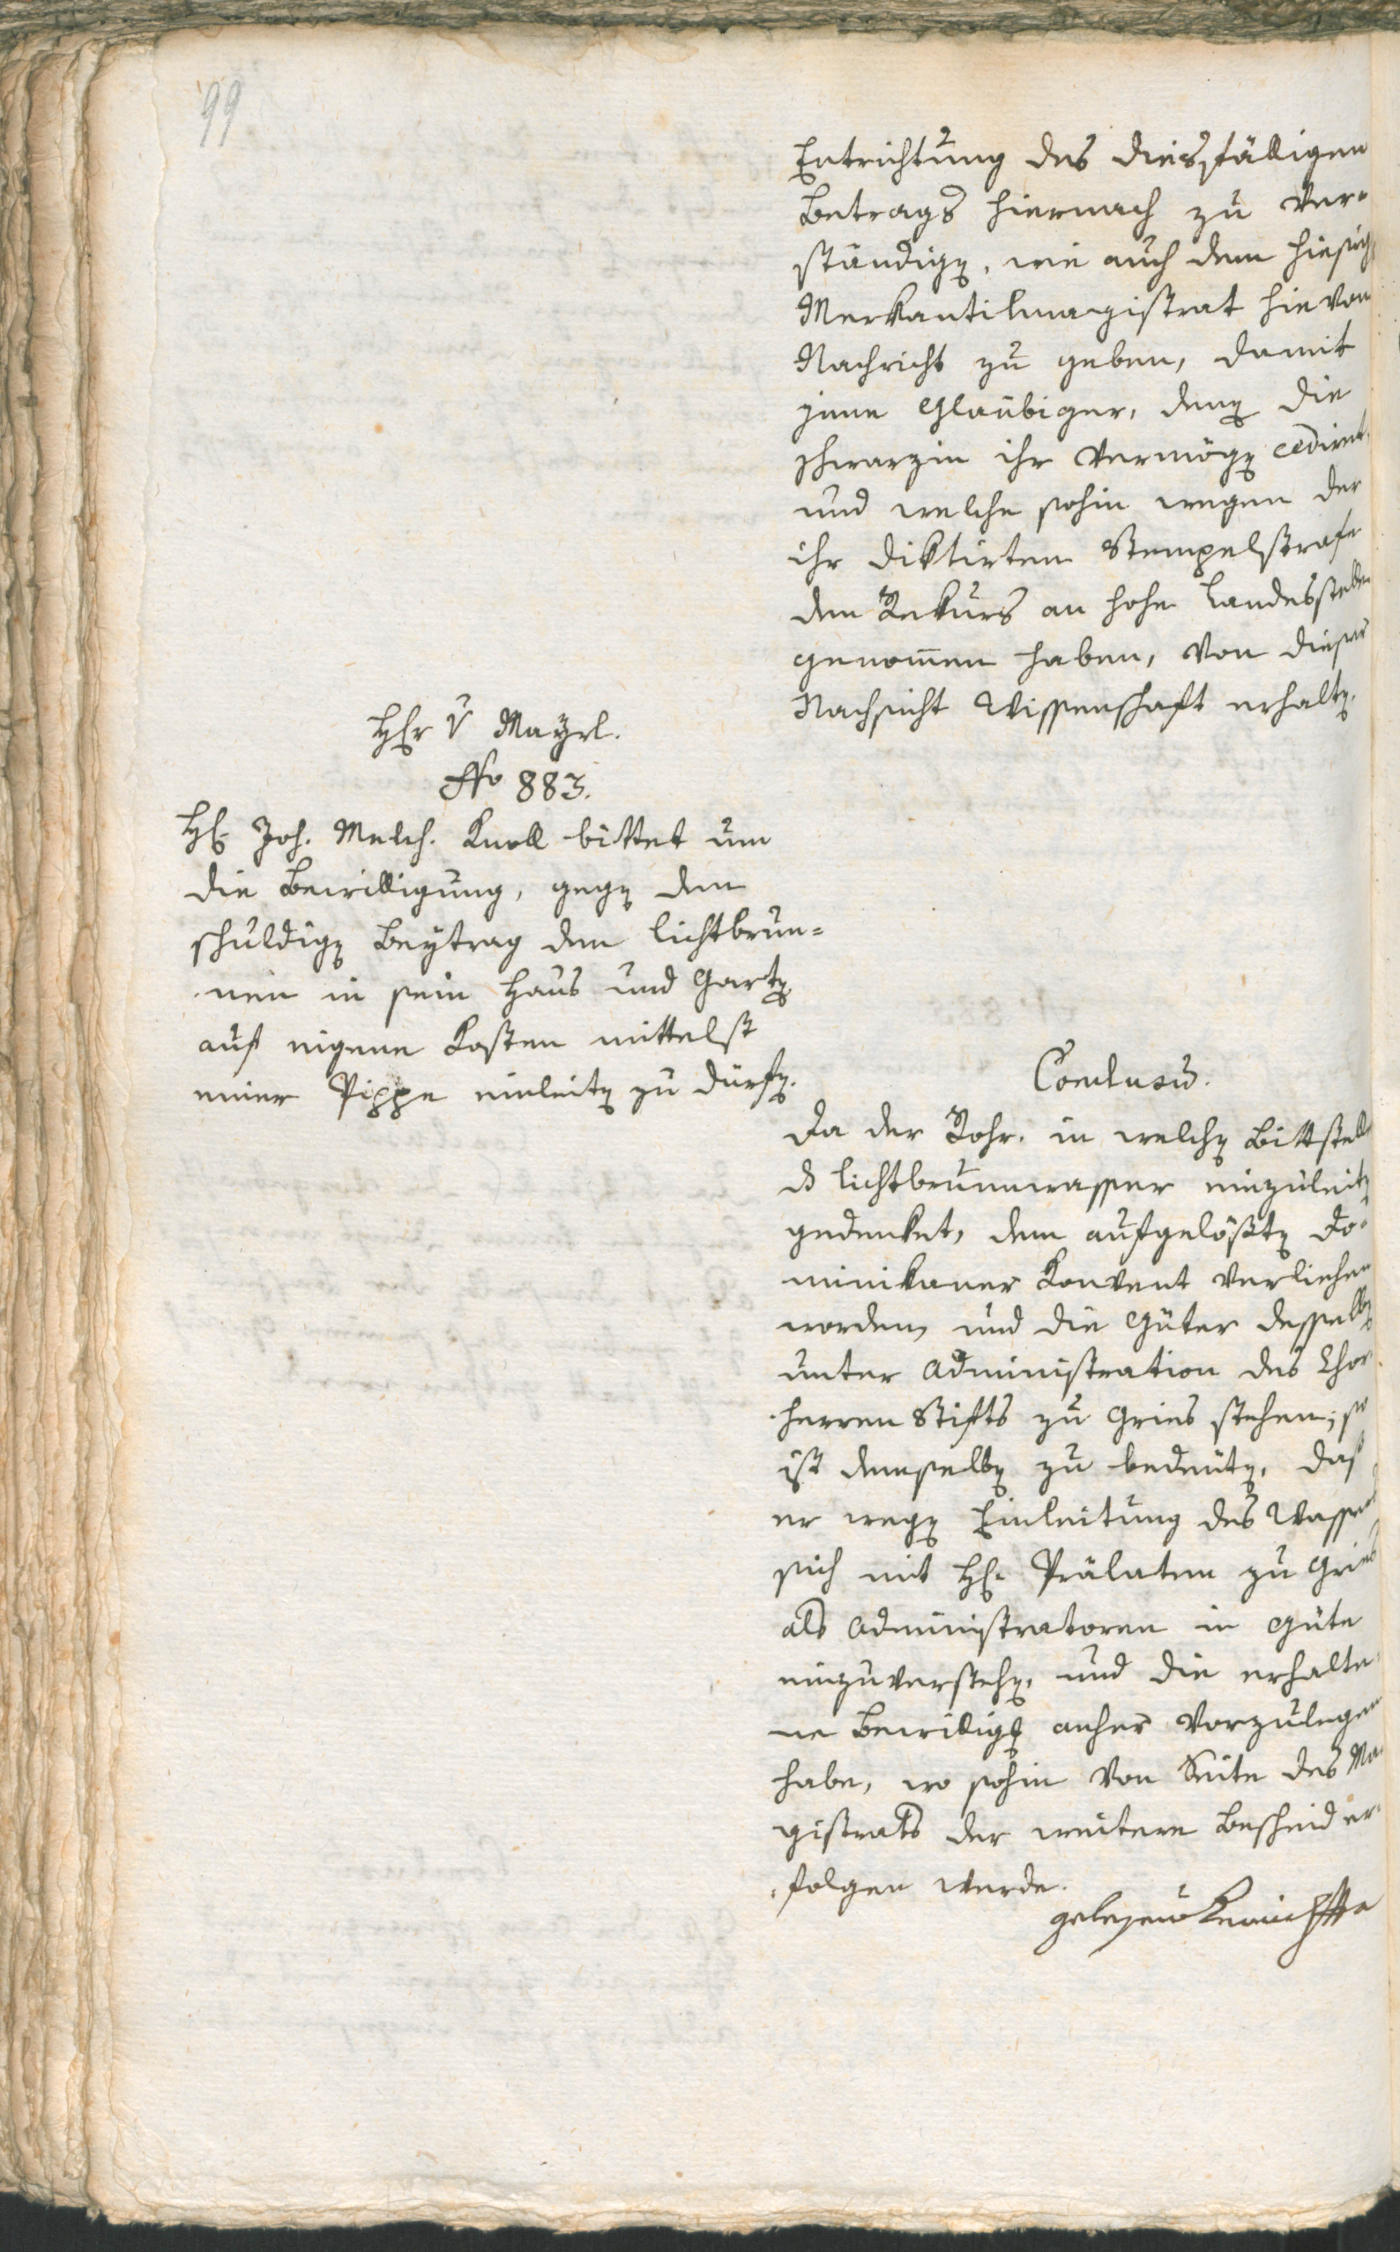 99
Entrichtung des diesfälligen
Betrags hiernach zu ver-
ständigen, wie auch dem hiesig
Merkantilmagistrat hievon
Nachricht zu geben, damit
jene Glaübiger, denen die
Schwarzin ihr Vermögen cedirt,
und welche sohin wegen der
ihr diktirten Stempelstrafe
den Rekurs an hohe Landesstelle
genom̄en haben, von dieser
Nachsicht Wissenschaft erhalten.
Hr v Mayrl.
No 883.
H. Joh. Melch. Knoll bittet um
die Bewilligung, gegen dem
schuldigen Beytrag den Lichtbrun-
nen in sein Haus und Garten
auf eigene Kosten mittelst
einer Pippe einleiten zu dürfen.
Conclusu.
Da der Rohr, in welchen Bittstell
ds Lichtbrunnwasser einzuleiten
gedenket, dem aufgelößten Do-
minikaner Konvent verliehen
worden, und die Güter desselben
unter Administration des Chor
herren Stifts zu Gries stehen; so
ist demselben zu bedeuten, daß
er wegen Einleitung des Wassers
sich mit H. Prälaten zu Gries
als Administratoren in Güte
einzuverstehen, und die erhalte-
ne Bewilligg anher vorzulegen
habe, wo sohin von Seite des Ma-
gistrats der weitere Bescheid er-
folgen werde.